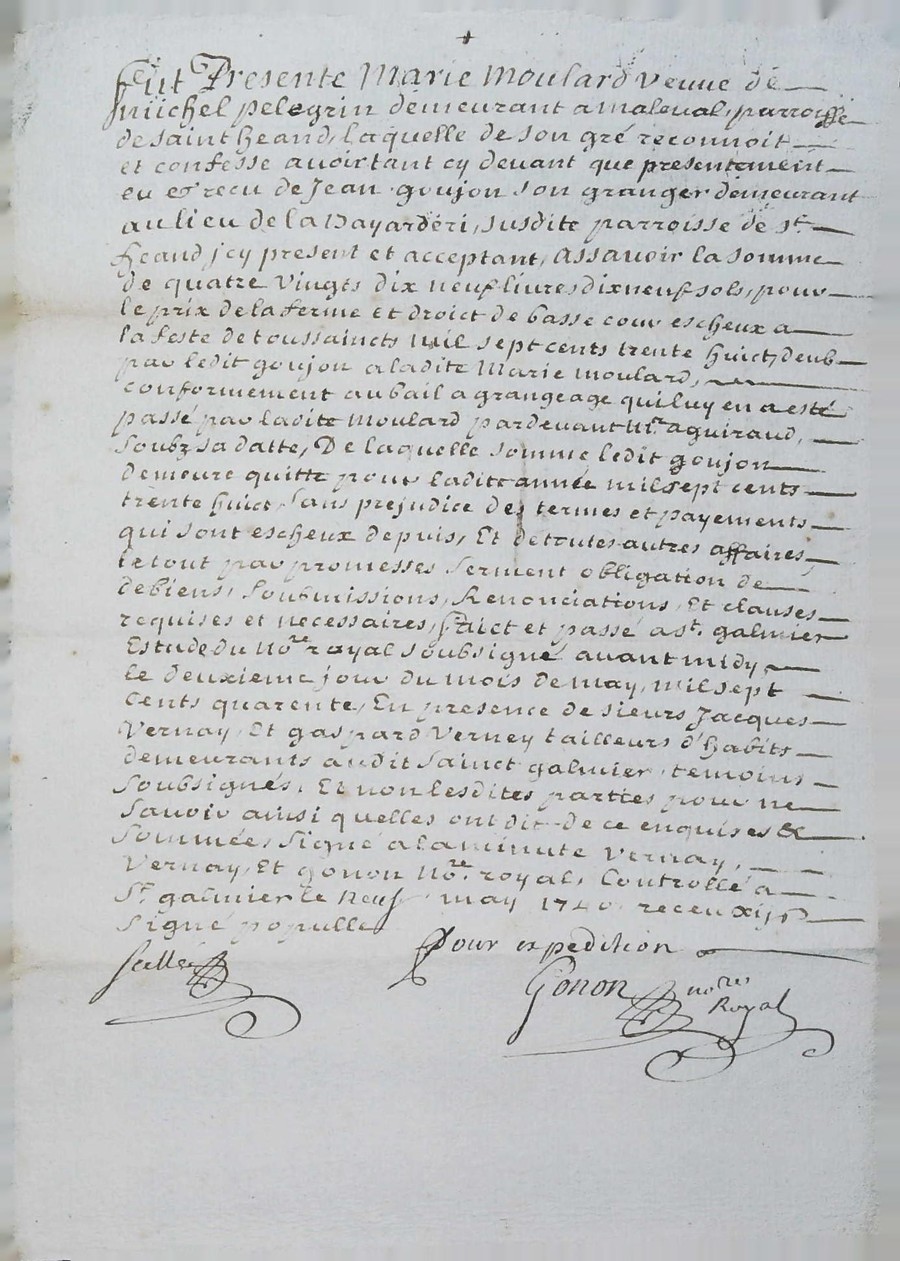 Feut Presente Marie Moulard veuve de
Michel pelegrin demeurant a maleval, parroisse
de saint heand, laquelle de son gré reconnoit
et confesse avoir tant cy devant que presentement
eu et recu de Jean goujon son granger demeurant
au lieu de la Bayarderi, susdite parroisse de st.
heand jcy present et acceptant, assavoir la somme
de quatre vingts dix neuf livres dix neuf sols, pour
le prix de la ferme et droict de basse cour escheux a
la feste de toussaincts mil sept cents trente huict, deub
par ledit goujon a ladite Marie moulard,
conformement au bail a grangeage qui luy en a esté
passé par ladite moulard pardevant Me. aguiraud,
soubz sa datte, De laquelle somme ledit goujon
demeure quitte pour ladite année mil sept cents
trente huict, sans prejudice des termes et payements
qui sont escheux depuis, Et de toutes autres affaires,
le tout par promesses serment obligation de
de biens, soubmissions, Renonciations, Et clauses
requises et necessaires, faict et passé a st. galmier
Estude du Nore. royal soubsigné avant midy,
le deuxieme jour du mois de may, mil sept
cents quarente, En presence de sieurs Jacques
Vernay, Et gaspard Verney tailleurs d'habits
demeurants audit sainct galmier, temoins
soubsignés, Et non lesdites parties pour ne
savoir ainsi quelles ont dit de ce enquises &
sommées, signé a la minute vernay,
vernay, Et gonon Nore. royal, Controllé a
St. galmier le neuf may 1740 receu xij s
signé populle
Pour expedition
scellé
Gonon nores
Royal